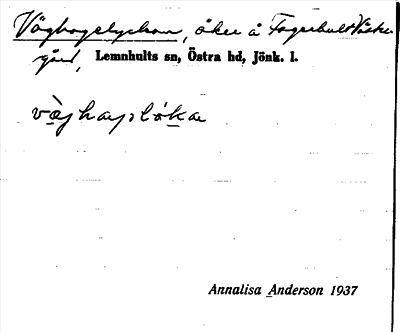 Våghagelyckan, åker å Fagerhult Väster-
gård, Lemnhults sn, Östra hd, Jönk. l.
Annalisa Anderson 1937